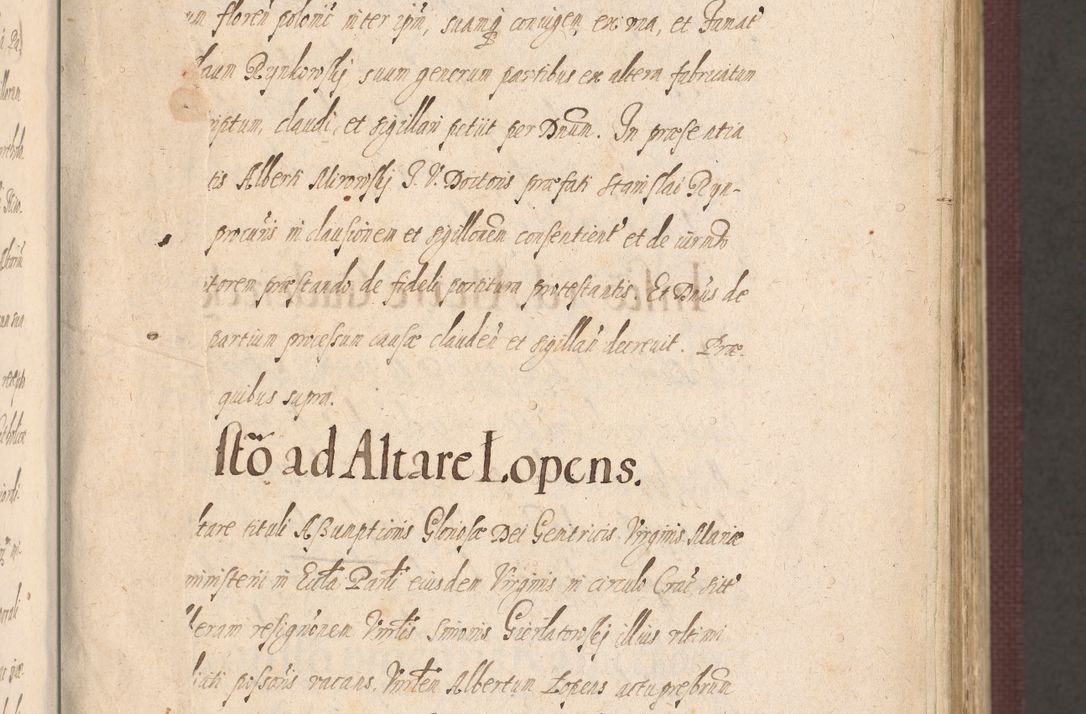 floren polonic inter ipm, suamq consugem ex vna, et Janat
laum Rynkowskj suum generum partibus ex altera fabricatum
riptum, claudi et sigillari petiit per Dnum. In præsentia
tis Alberti Mirowskj J. V. Doctoris præfati Stanislai Ryn-
procuris in clausionem et sigillorem consentient et de iurndo
torem præstando de fideli portitura protestantis. Et Dnus de
partium processum causæ claudei et sigillari decreuit. Præ-
quibus supra.
stõ ad Altare Lopens.
ltare tituli Assumptionis Gloriosæ Dei Genitricis Virginis Mariæ
ministerii in Eccla Parli eiusdem Virginis in circulo Crac sitt
leram resignonem Vnrlis Simonis Gierlatowskj illius vltimi
possoris vacans. Vnrlem Albertum Lopens actu presbrum